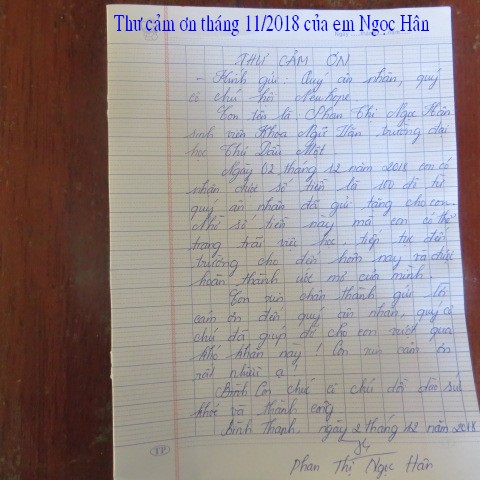 Thư cảm ơn tháng 11/2018 của em Ngọc Hân
THƯ CẢM ƠN
- Kính gửi: Quý ân nhân, quý
cô chú hội Newhope
Con tên là: Phan Thị Ngọc Hân
sinh viên Khoa Ngữ Văn trường đại
học Thủ Dầu Một
Ngày 02 tháng 12 năm 2018 con có
nhận được số tiền là 100 đô từ
quý ân nhân đã gửi tặng cho con.
Nhờ số tiền này mà con có thể
trang trải việc học, tiếp tục đến
trường cho đến hôm nay và được
hoàn thành ước mơ của mình.
Con xin chân thành gửi lời
cảm ơn đến quý ân nhân, quý cô
chú đã giúp đỡ cho con vượt qua
khó khăn này! Con xin cảm ơn
rất nhiều ạ!
Kính Con chúc cô chú dồi dào sức
khỏe và thành công
Bình Thạnh, ngày 2 tháng 12 năm 2018
Phan Thị Ngọc Hân